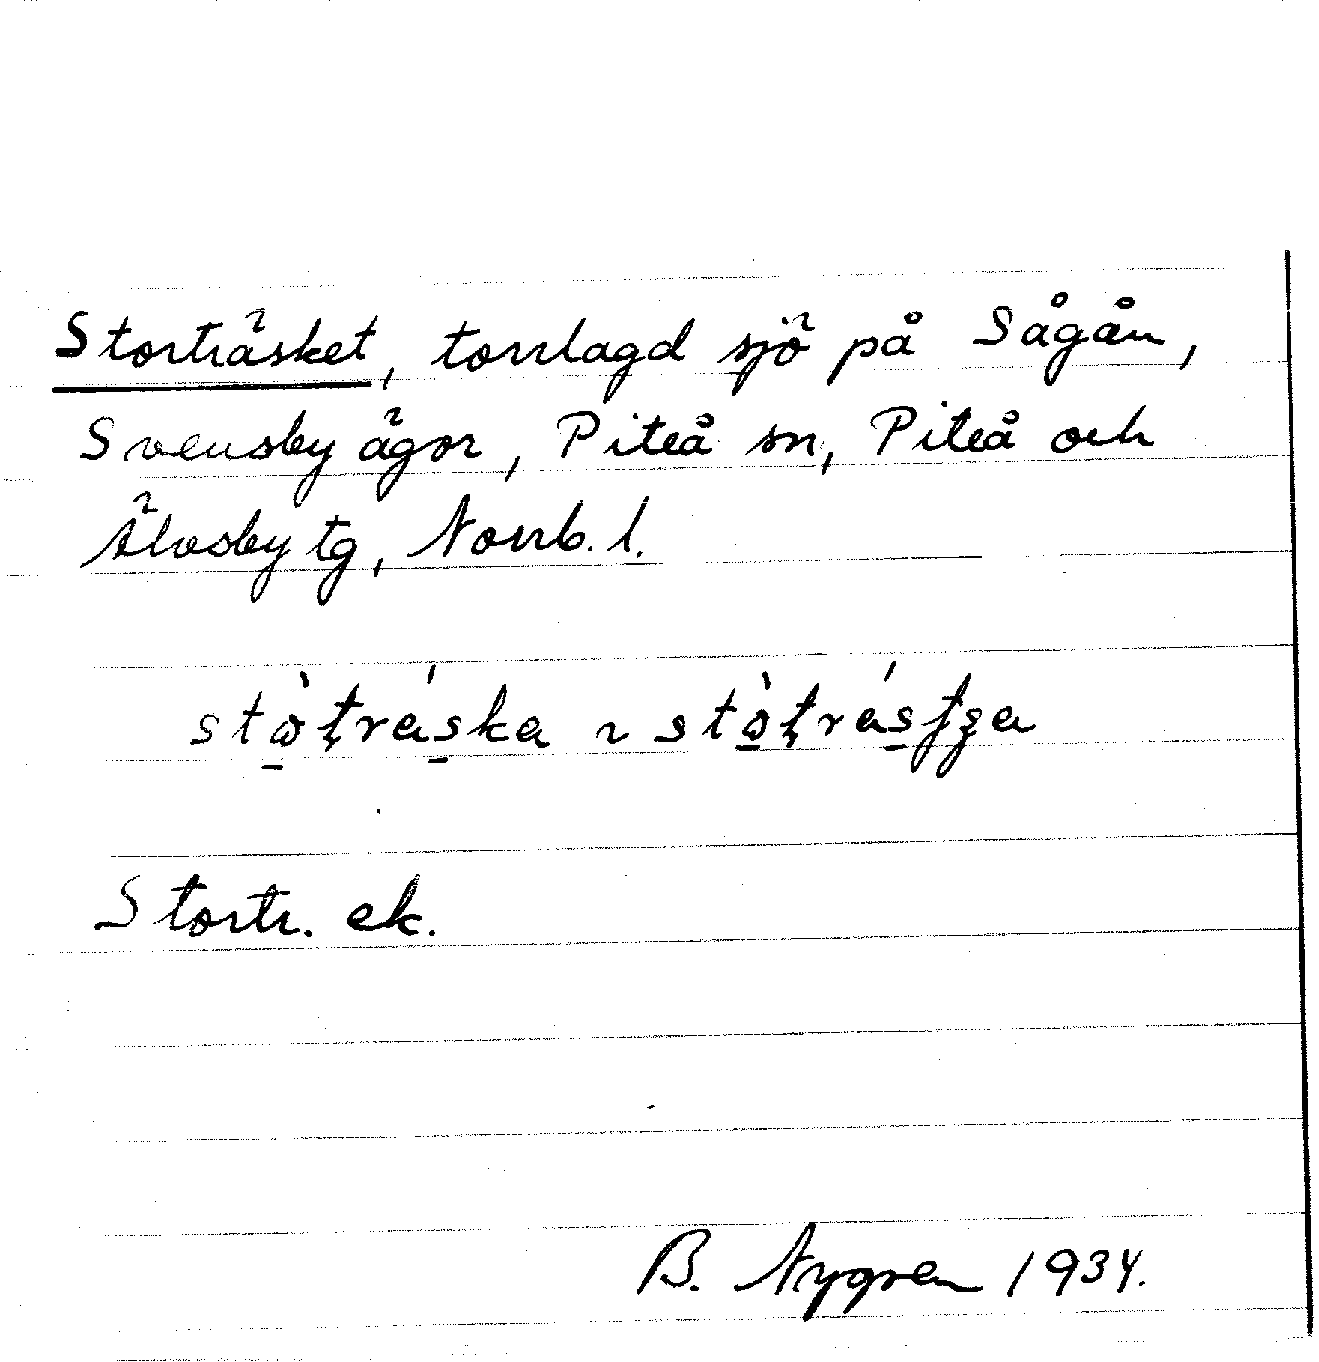 Storträsket, torrlagd sjö på Sågån,
Svensby ägor, Piteå sn, Piteå och
Älvsby tg, Norrb. l.
stò̠ʈrá̠ska ~ stò̠ʈrá̠sʄʓa
Stortr. ek.
B. Nygren 1934.